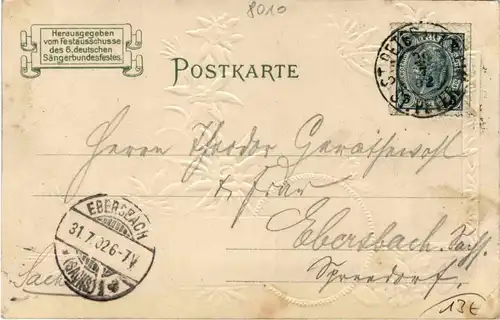 8010
Herausgegeben
vom Festausschusse
des 6. deutschen
Sängerbundesfestes.
POSTKARTE
Herrn Theodor Garathewohl
u. Frau
Ebersbach, Sachs.
Spreedorf.
EBERSBACH
31.7.02.6-7V.
(SACHS)
Sach
13€